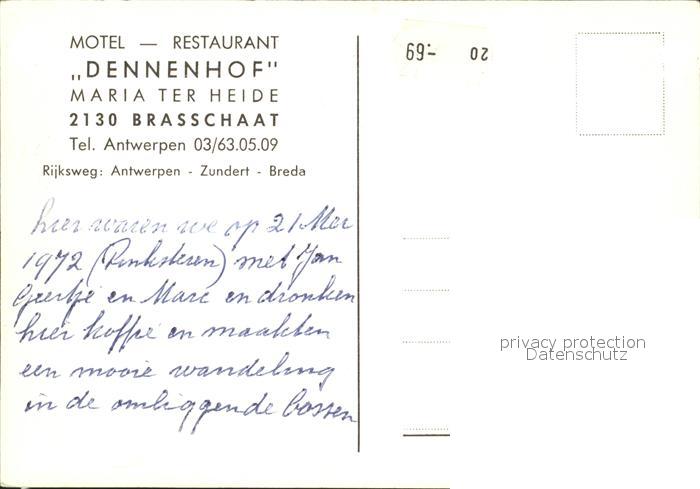 MOTEL — RESTAURANT
„DENNENHOF"
MARIA TER HEIDE
2130 BRASSCHAAT
Tel. Antwerpen 03/63.05.09
Rijksweg: Antwerpen - Zundert - Breda
hier waren we op 21 Mei
1972 (Pinksteren) met Jan
Geertje en Marc en dronken
hier koffie en maakten
een mooie wandeling
in de omliggende bossen
20 -.69
privacy protection
Datenschutz